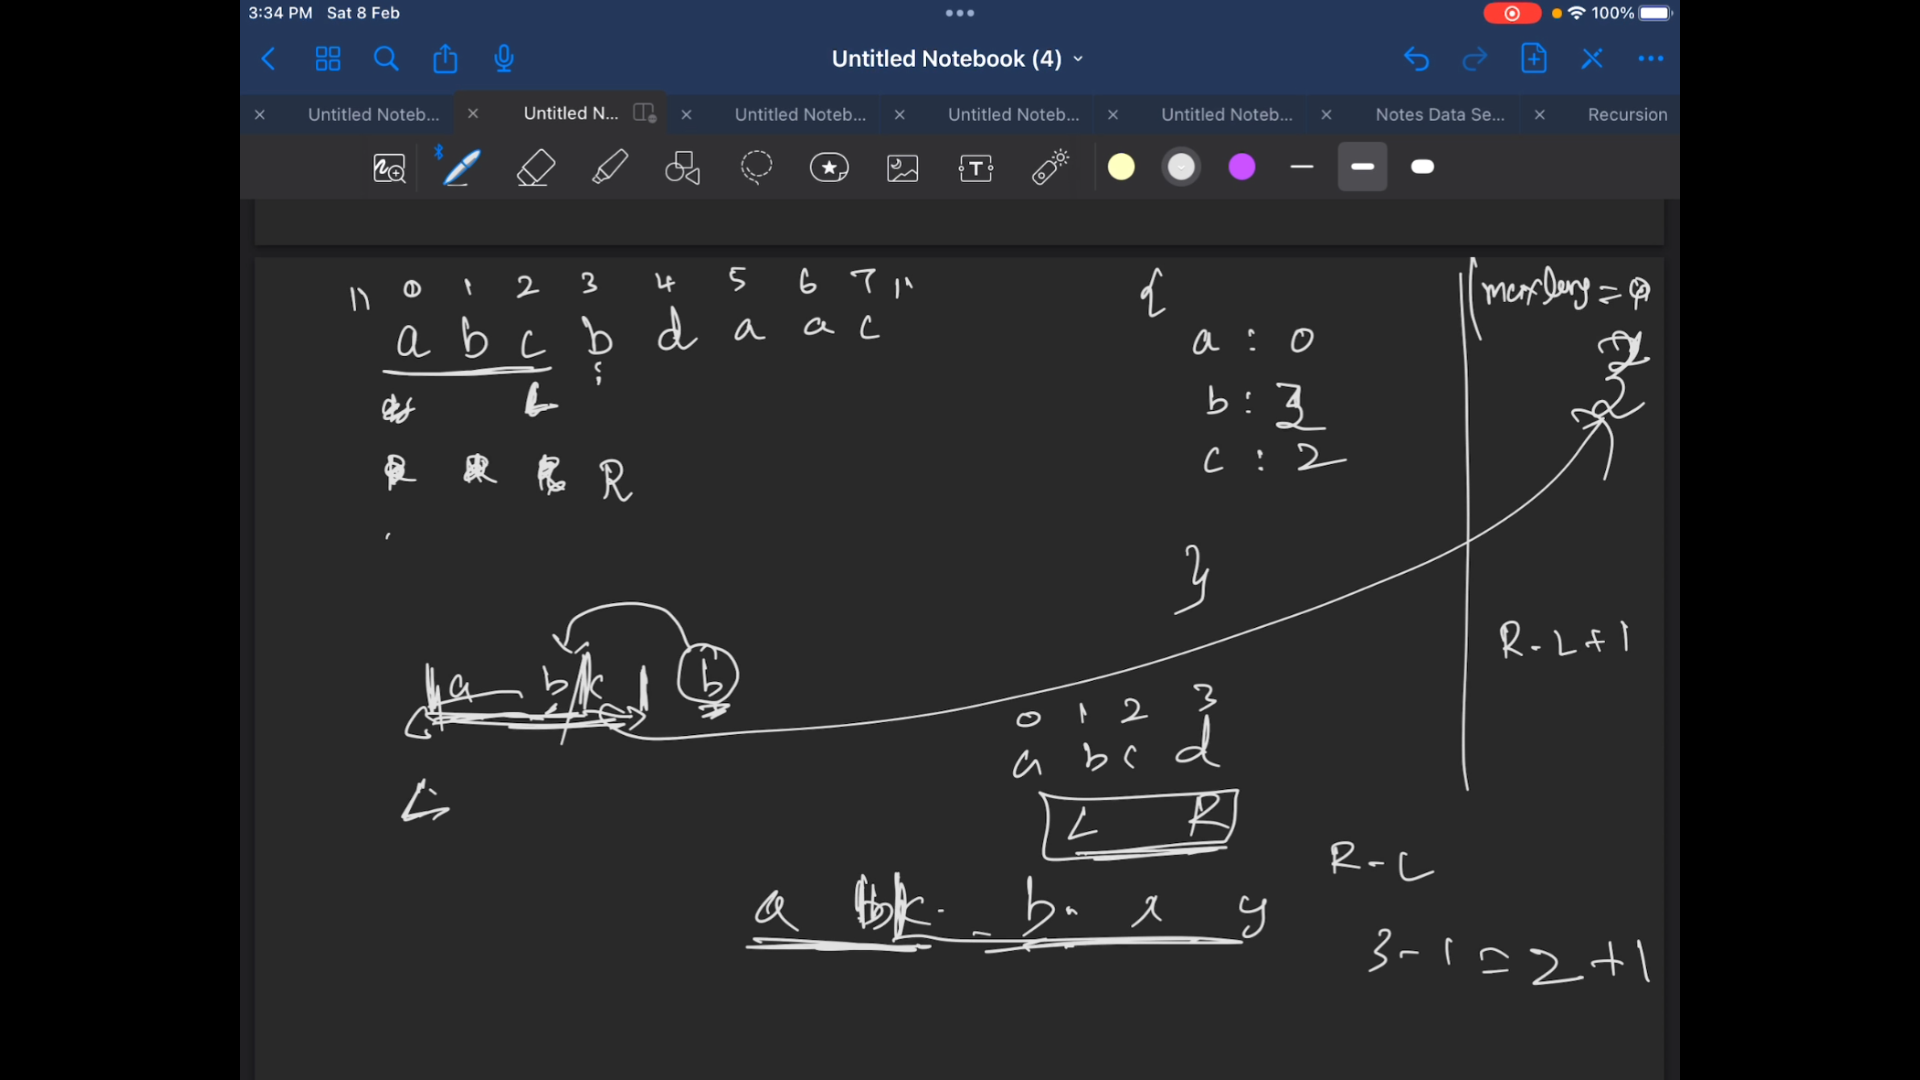 3:34 PM Sat 8 Feb
100%
Untitled Notebook (4)
Untitled Noteb...
Untitled N...
Untitled Noteb...
Untitled Noteb...
Untitled Noteb...
Notes Data Se...
Recursion
T
" 0 1 2 3 4 5 6 7 "
a b c b d a a c
L
R
{
a : 0
b :
c : 2
}
maxleng =
R - L + 1
a b c b
L
0 1 2 3
a b c d
L R
R - L
a b c b x y
3 - 1 = 2 + 1